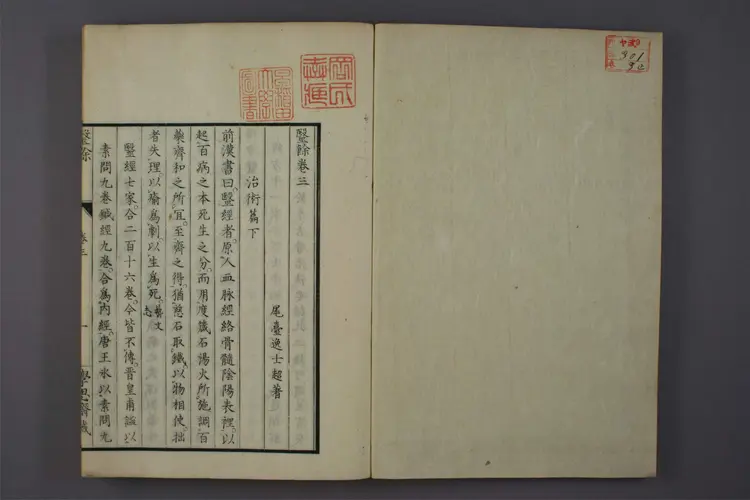 醫餘卷三
尾臺逸士超著
治術篇下
前漢書曰。醫經者。原人血脈經絡骨髓陰陽表裡。以
起百病之本死生之分。而用度箴石湯火所施。調百
藥齊和之所宜。至齊之得。猶慈石取鐵。以物相使。拙
者失理。以瘉爲劇。以生爲死。藝文志
醫經七家。合二百十六卷。今皆不傳。晉皇甫謐以
素問九卷鍼經九卷。合爲內經。唐王氷以素問九
醫餘 卷三 一 學思齋藏